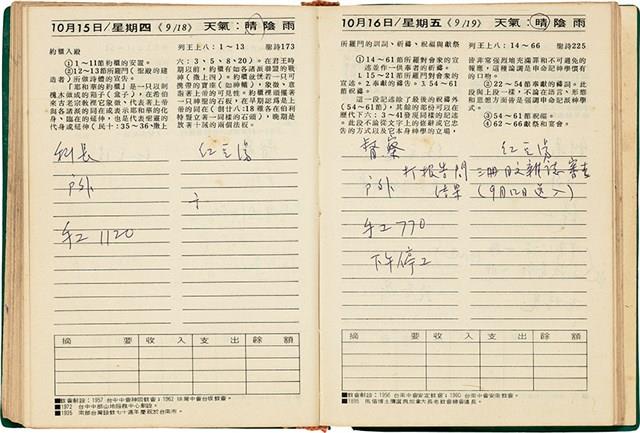 10月15日/星期四(9/18) 天氣:晴陰雨
約櫃入殿 列王上八:1～13 聖詩173
①1～11節約櫃的安置。
②12～13節所羅門(聖殿的建
造者)所做詩體的宣告。
「耶和華的約櫃」是一只以刺
槐木做成的箱子(盒子),在希伯
來古老宗教裡它象徵、代表著上帝
與各諸派的同在或表示耶和華的化
身、臨在的延伸,也是代表聖經的
代身或延伸(民十:35～36、撒上
六:3、5、8、20)。在君王時
期以前,約櫃有如各諸派聯盟的戰
神(撒上四)。約櫃起先若一只可
携帶的寶座(如神輦),象徵、意
指著上帝的可見性。約櫃裡邊擺著
一只神聖的石板,在早期認為是上
帝的同在(創廿八:18雅各在伯特
利特豎立著一同樣的石頭),晚期是
放著十誡的兩個法板。
科長 紅豆湯
戶外 十
手工1120
摘要 收入 支出 餘額
■教會創設:1957 台中中會神岡教會;1962 嘉義中會台保教會。
■1972 台中中部山地服務中心創設。
■1935 南部台灣設教七十週年慶祝於台南市。
10月16日/星期五(9/19) 天氣:晴陰雨
所羅門的訓詞、祈禱、祝福與獻祭 列王上八:14～66 聖詩225
①14～61節所羅門對會衆的宣
述並作一供奉者的祈禱。
1. 15～21節所羅門對會衆的
宣述。2.奉獻的禱告。3. 54～61
節祝禱。
這一段記述除了最後的祝禱外
(54～61節),其餘的部份可以在
歷代下六:3～41發現同樣的記述
。此段不論從文字上的修辭或它忠
告的方式以及它本身神學的立場,
皆非常强烈地充滿罪和不可避免的
報應,這種論調是申命記神學慣有
的口吻。
②22～54節奉獻的禱詞。此
段與上段一樣,不論在語言、形態
和思想方面皆是强調申命記派神學
式。
③54～61節祝福。
④62～66獻祭和宴會。
督察 紅豆湯
打報告問 三冊日文雜誌審查
戶外 結果 (9月12日送入)
手工770
下午停工
摘要 收入 支出 餘額
■教會創設:1956 台南中會安定教會;1960 台南中會安南教會。
■1895 馬偕博士獲選為加拿大長老教會總會議長。